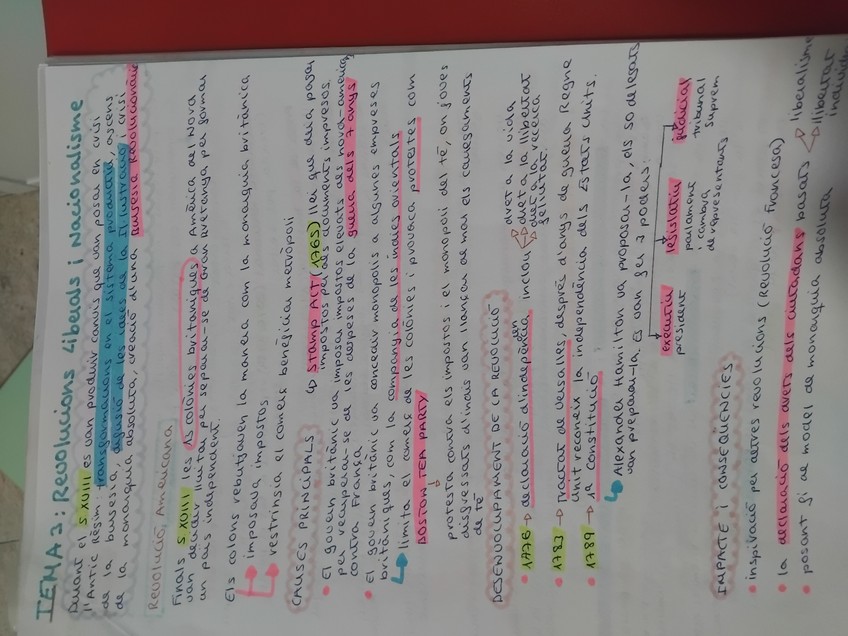 TEMA 2: Revolucions Liberals i Nacionalisme
Durant el S.XVIII es van produir canvis que van posar en crisi
l'Antic Règim: transformacions en el sistema productiu, ascens
de la burgesia, difusió de les idees de la Il·lustració i crisi
de la monarquia absoluta, creació d'una burgesia Revolucionària
Revolució Americana
Finals S.XVIII les 13 colònies britàniques a Amèrica del Nord
van decidir lluitar per separar-se de Gran Bretanya per formar
un país independent.
Els colons rebutjaven la manera com la monarquia britànica
→ imposava impostos
→ restringia el comerç benefici metròpoli
CAUSES PRINCIPALS
↳ STAMP ACT (1765) llei que deia pagar
impostos per als documents impresos.
• El govern britànic va imposar impostos elevats als nord-americans
per recuperar-se de les despeses de la guerra dels 7 anys
contra França
• El govern britànic va concedir monopolis a algunes empreses
britàniques, com la companyia de les índies orientals
↳ limita el comerç de les colònies i provoca protestes com
BOSTON TEA PARTY
protesta contra els impostos i el monopoli del té, on joves
disfressats d'indis van llançar al mar els carregaments
de té
DESENVOLUPAMENT DE LA REVOLUCIÓ
• 1776 → declaració d'independència, inclou
dret a la vida
dret a la llibertat
dret a la recerca
felicitat.
• 1783 → Tractat de Versalles, després d'anys de guerra Regne
Unit reconeix la independència dels Estats Units.
• 1789 → 1ª constitució
↳ Alexander Hamilton va proposar-la, els 50 delegats
van preparar-la. Es van fer 3 poders:
executiu
president
legislatiu
parlament
i cambra
de representants
judicial
tribunal
suprem
IMPACTE I CONSEQÜÈNCIES
• inspiració per altres revolucions (Revolució Francesa)
• la declaració dels drets dels ciutadans basats
liberalisme
llibertat
individual
• posant fi al model de monarquia absoluta